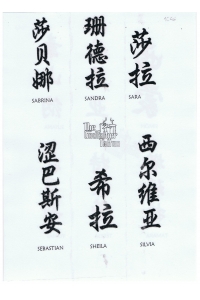 莎贝娜
SABRINA
珊德拉
SANDRA
莎拉
SARA
涩巴斯安
SEBASTIAN
希拉
SHEILA
西尔维亚
SILVIA